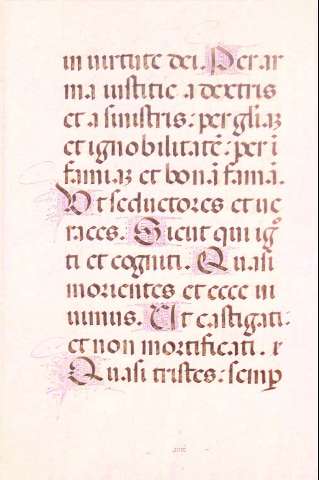 in uirtute dei. Per ar
ma iustitie a dextris
et a sinistris: per gl'iaȝ
et ignobilitatē: per ī
famiaȝ et bonā famā.
Ut seductores et ue
races. Sicut qui ig̃
ti et cogniti. Quasi
morientes et ecce ui
uimus. Ut castigati:
et non mortificati. ⁊
Quasi tristes: semp̱